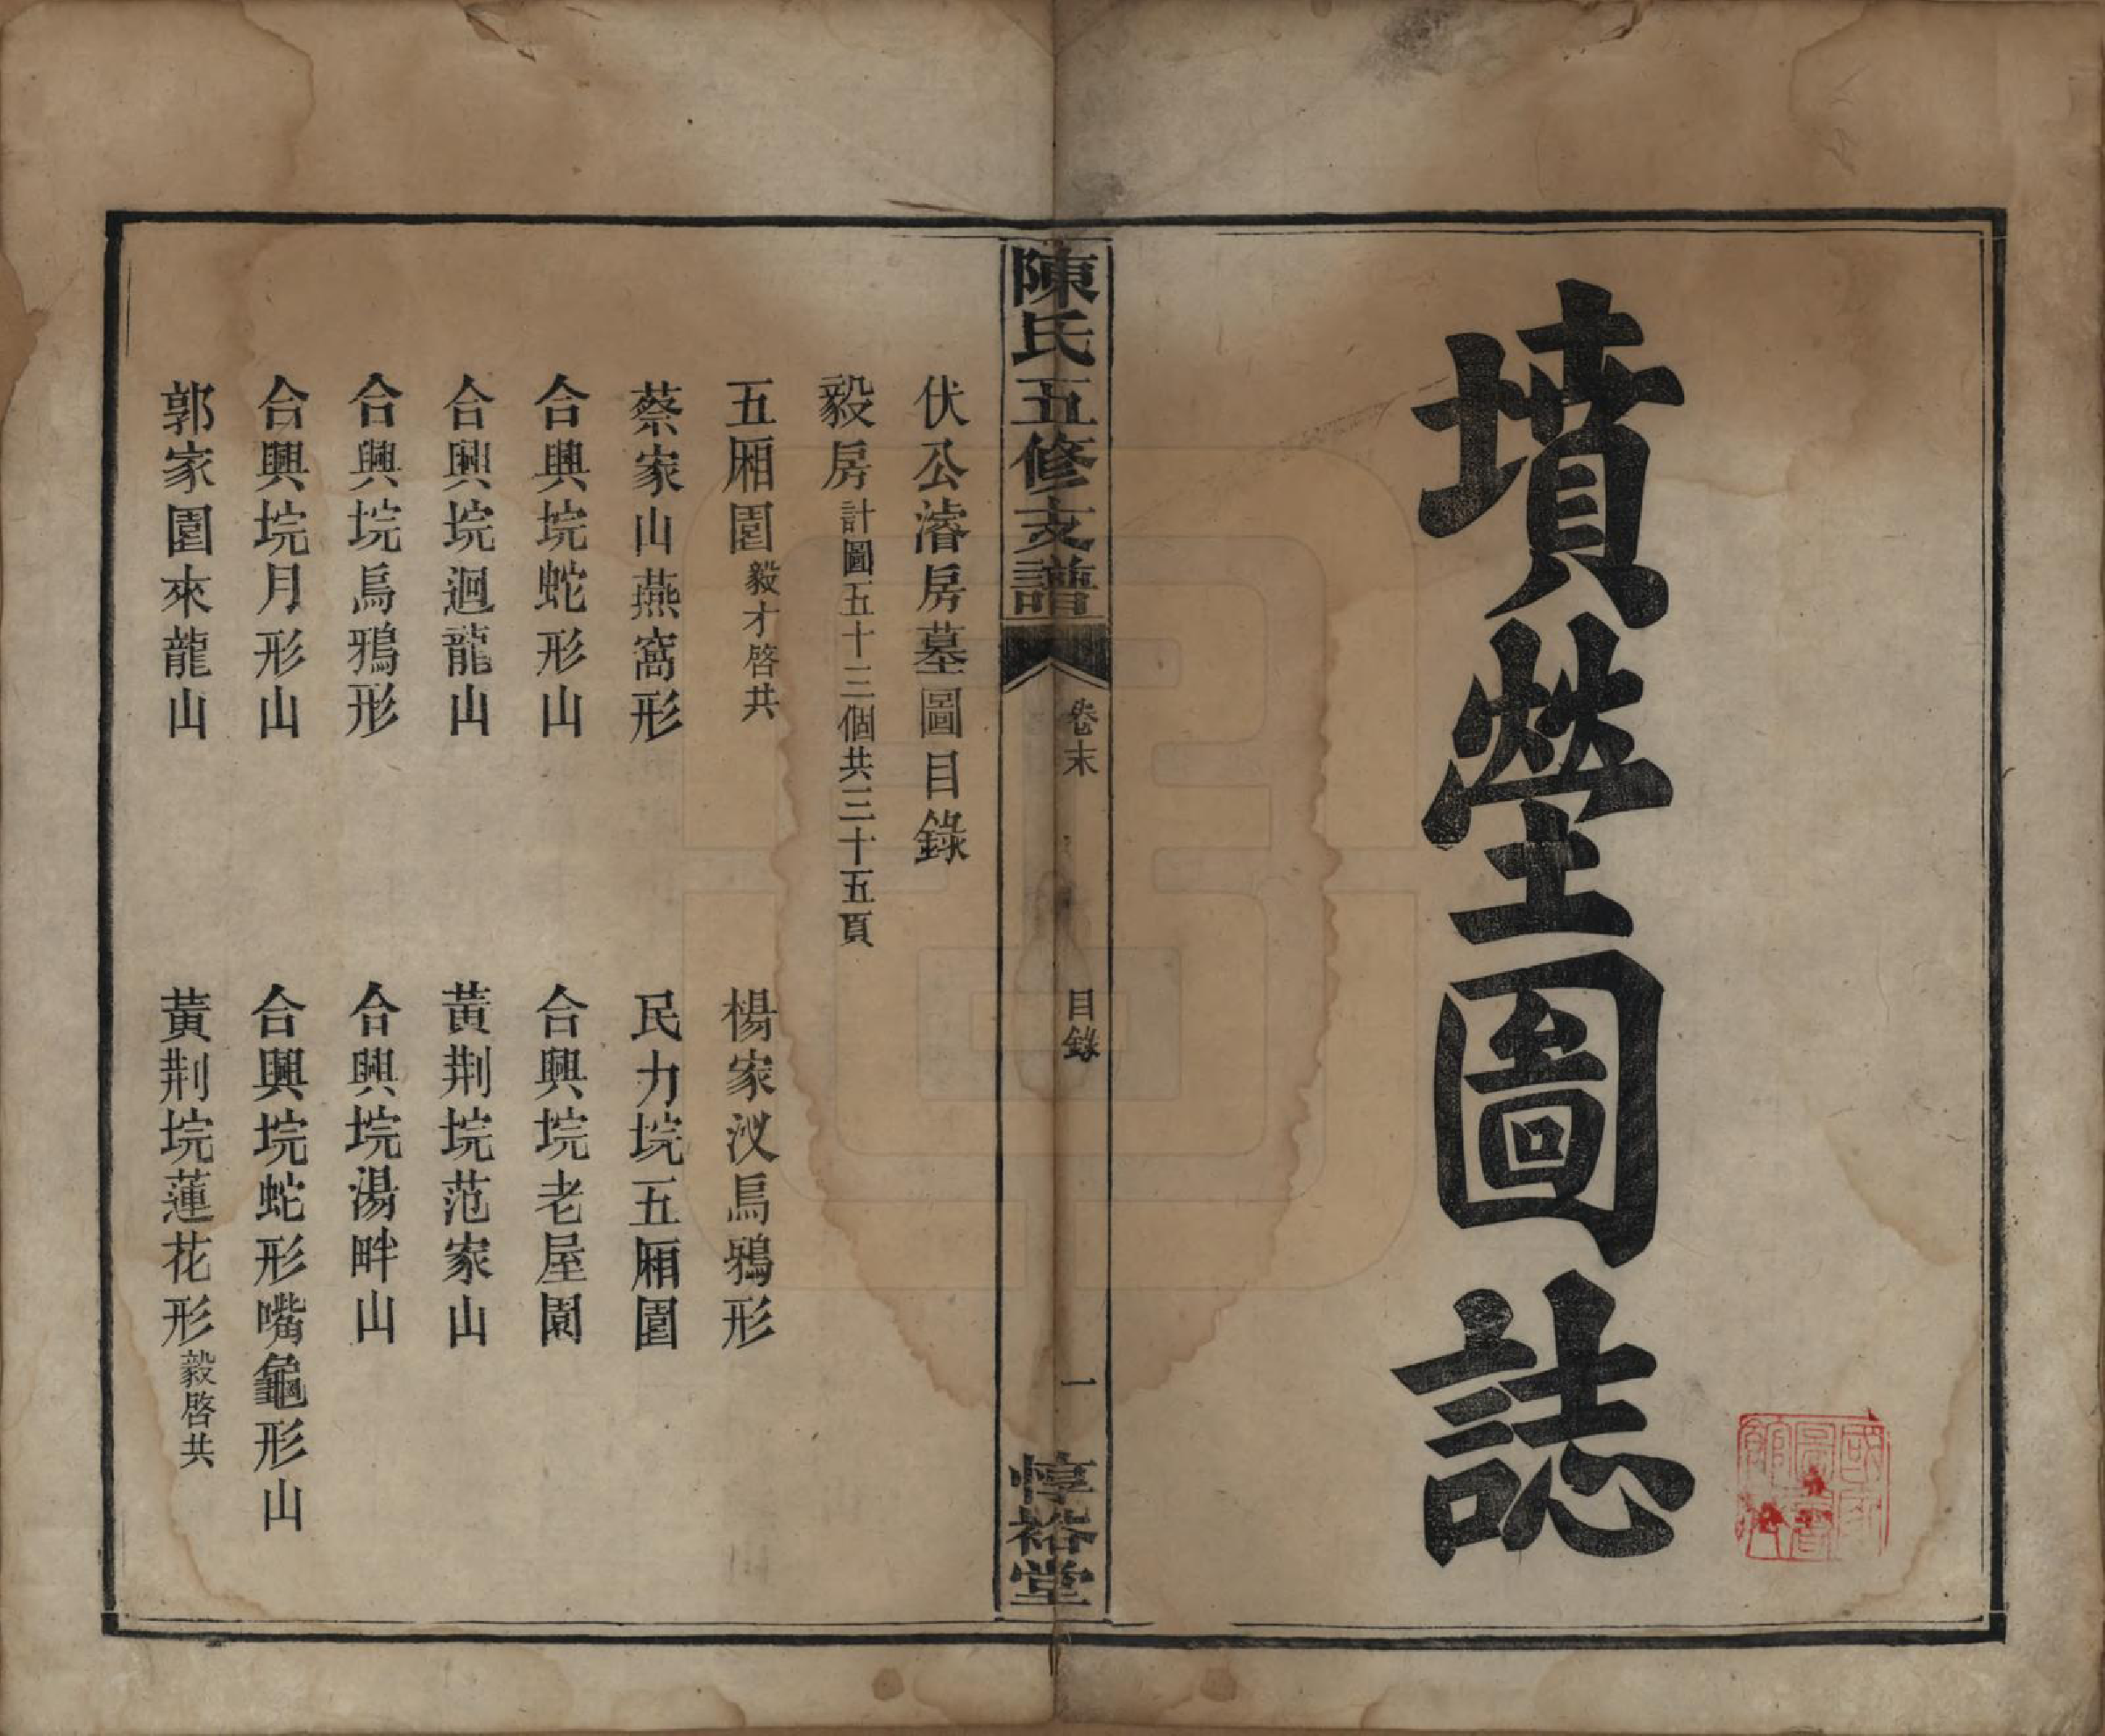 墳塋圖誌
陳氏五修支譜
卷末
目錄
一
惇裕堂
伏公濬房墓圖目錄
毅房計圖五十三個共三十五頁
五厢園毅才啓共
楊家汊烏鴉形
蔡家山燕窩形
民力垸五厢園
合興垸蛇形山
合興垸老屋園
合興垸迴龍山
黃荆垸范家山
合興垸烏鴉形
合興垸湯畔山
合興垸月形山
合興垸蛇形嘴龜形山
郭家園來龍山
黃荆垸蓮花形毅啓共